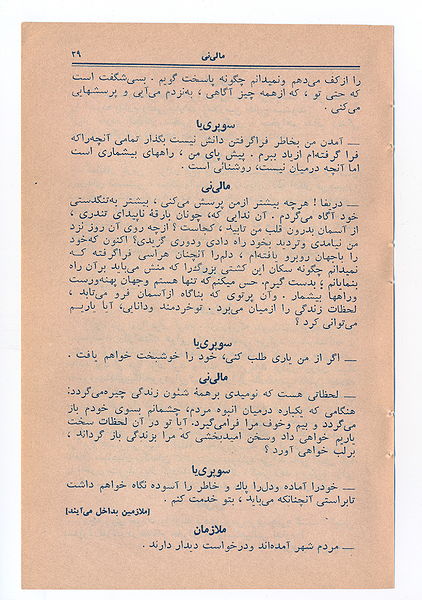 مالی‌نی
۲۹
را ازکف می‌دهم ونمیدانم چگونه پاسخت گویم . بسی‌شگفت است
که حتی تو ، که ازهمه چیز آگاهی ، به‌نزدم می‌آیی و پرسشهایی
می‌کنی .
سوپری‌یا
ــ آمدن من بخاطر فراگرفتن دانش نیست بگذار تمامی آنچه‌راکه
فرا گرفته‌ام ازیاد ببرم . پیش پای من ، راههای بیشماری است
اما آنچه درمیان نیست، روشنائی است .
مالی‌نی
ــ دریغا ! هرچه بیشتر ازمن پرسش می‌کنی ، بیشتر به‌تنگدستی
خود آگاه می‌گردم . آن ندایی که، چونان بارقهٔ ناپیدای تندری ،
از آسمان بدرون قلب من تابید ، کجاست ؟ ازچه روی آن روز نزد
من نیامدی وتردید بخود راه دادی ودوری گزیدی؟ اکنون که‌خود
را باجهان روبرو یافته‌ام ، دلم‌را آنچنان هراسی فراگرفته کــه
نمیدانم چگونه سکان این کشتی بزرگ‌را که منش می‌باید برآن راه
بنمایانم ، بدست گیرم. حس میکنم‌که تنها هستم وجهان پهنه‌ورست
وراهها بیشمار . وآن پرتوی که بناگاه ازآسمان فرو می‌تابد ،
لحظات زندگی را ازمیان می‌برد . توخردمند ودانایی، آیا یاریم
می‌توانی کرد ؟
سوپری‌یا
ــ اگر از من یاری طلب کنی، خود را خوشبخت خواهم یافت .
مالی‌نی
ــ لحظاتی هست که نومیدی برهمهٔ شئون زندگی چیره‌می‌گردد:
هنگامی که یکباره درمیان انبوه مردم، چشمانم بسوی خودم باز
می‌گردد و بیم وخوف مرا فرامی‌گیرد. آیا تو در آن لحظات سخت
یاریم خواهی داد وسخن امیدبخشی که مرا بزندگی باز گرداند ،
برلب خواهی آورد ؟
سوپری‌یا
ــ خودرا آماده ودل‌را پاك و خاطر را آسوده نگاه خواهم داشت
تابراستی آنچنانکه می‌باید ، بتو خدمت کنم .
[ملازمین بداخل می‌آیند]
ملازمان
ــ مردم شهر آمده‌اند ودرخواست دیدار دارند .